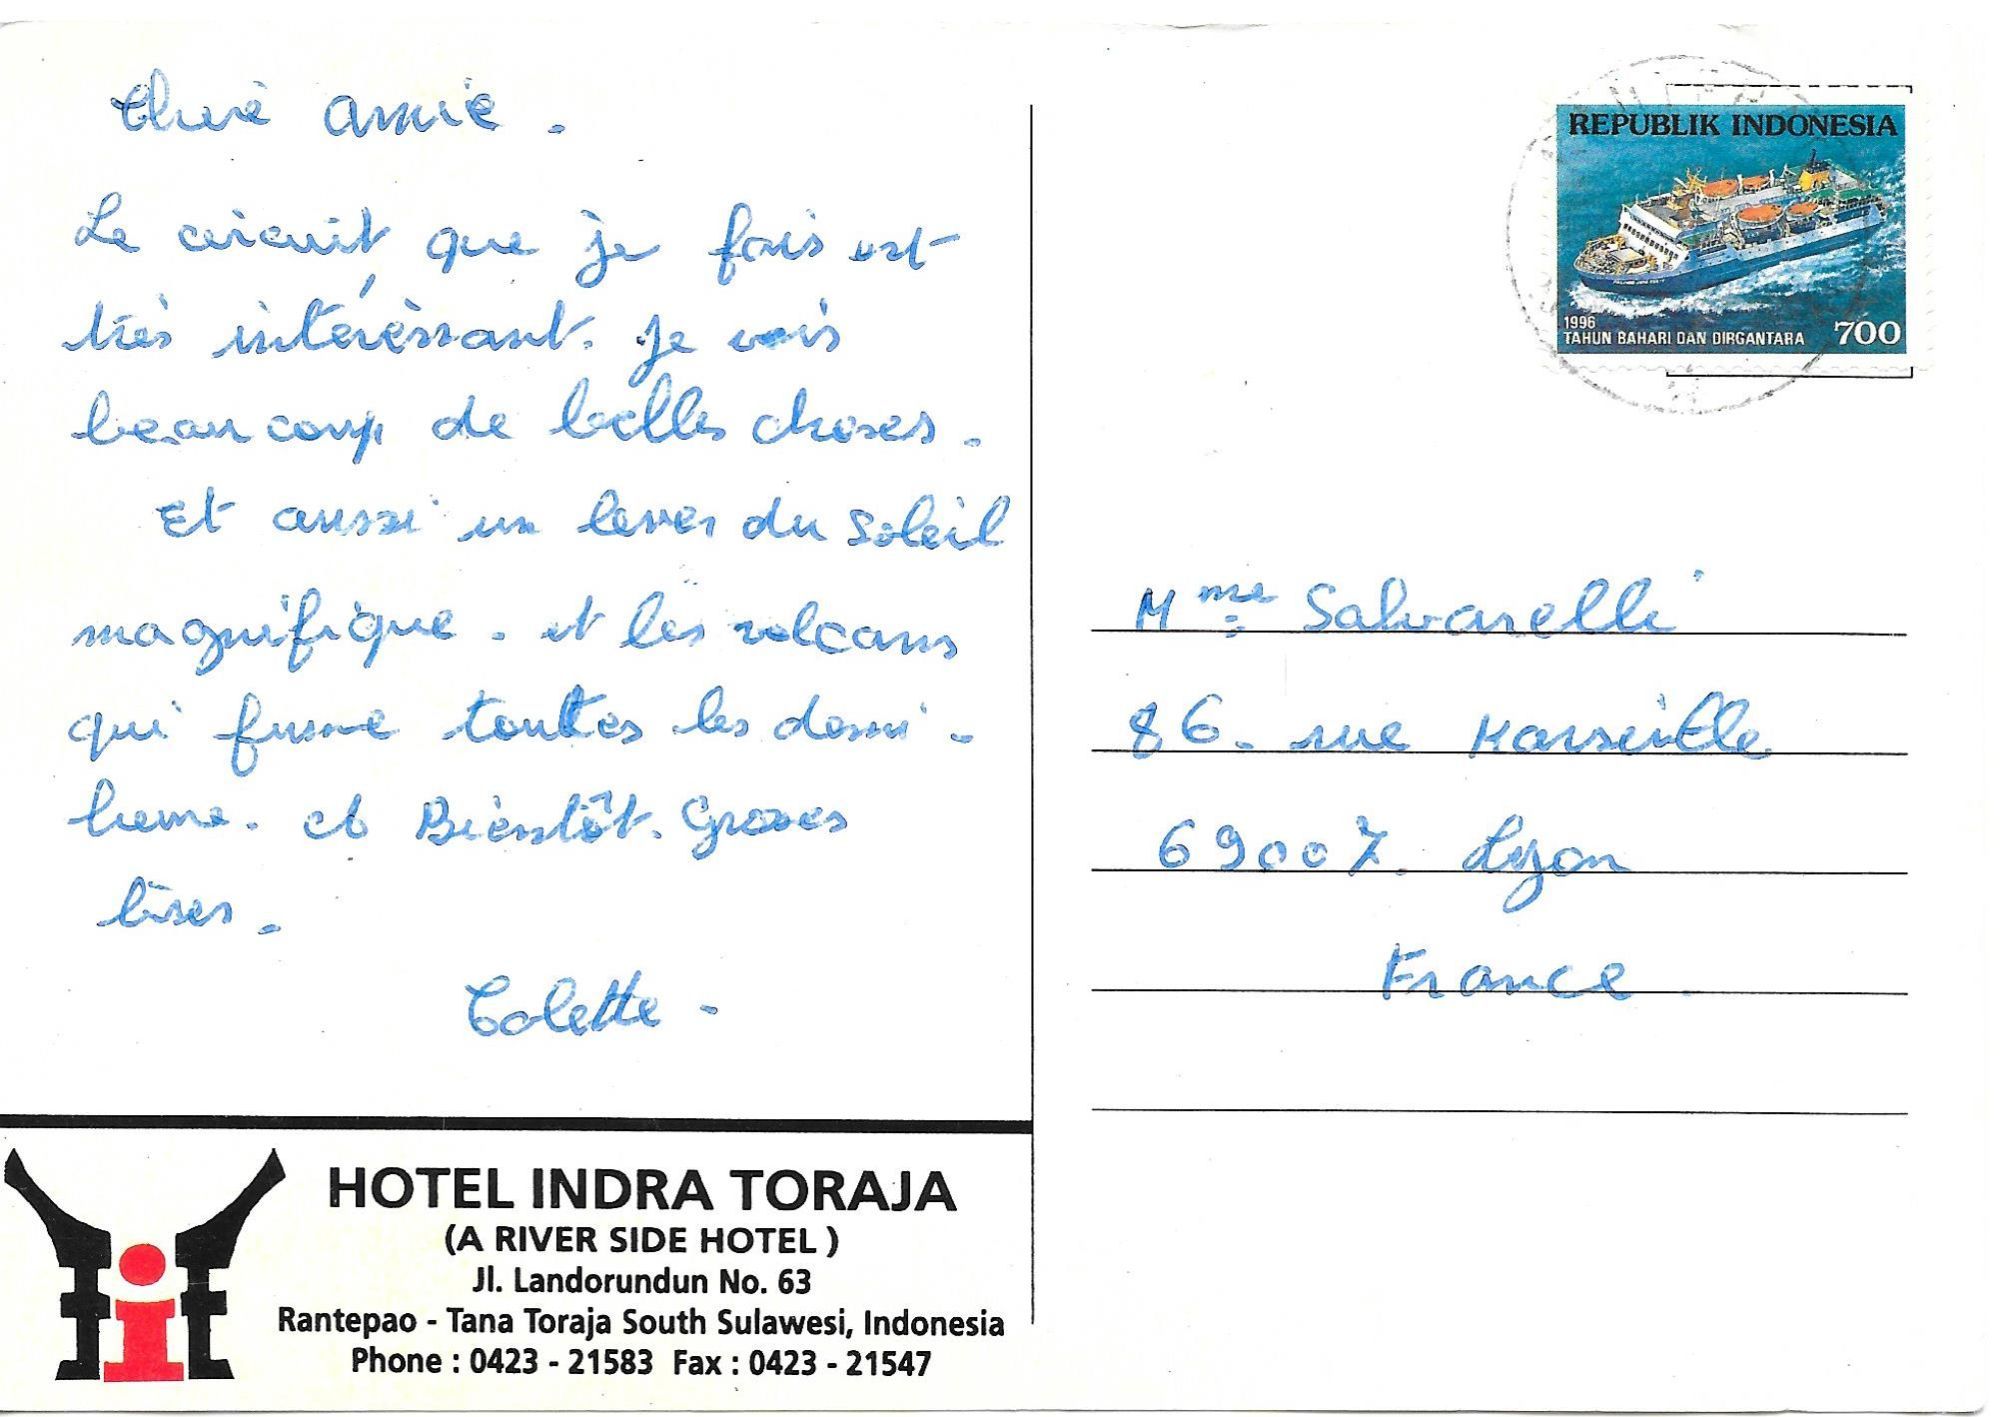 Cherè amie.
Le circuit que je fais est
très intérèssant. je vois
beaucoup de belles choses.
Et aussi un lever du soleil
magnifique. et les volcans
qui fume toutes les demi-
heure. et Bientôt. Grosses
bises.
Colette.
REPUBLIK INDONESIA
1996
TAHUN BAHARI DAN DIRGANTARA 700
Mme Salvarelli
86. rue Marseille
69007. Lyon
France.
HOTEL INDRA TORAJA
(A RIVER SIDE HOTEL)
Jl. Landorundun No. 63
Rantepao - Tana Toraja South Sulawesi, Indonesia
Phone : 0423 - 21583 Fax : 0423 - 21547